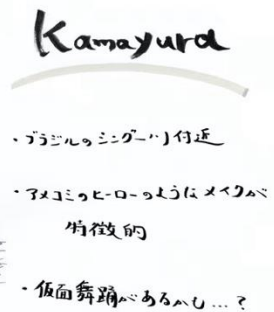 Kamayura
・ブラジルのシングー川付近
・アメコミのヒーローのようなメイクが
特徴的
・仮面舞踊があるかも…?